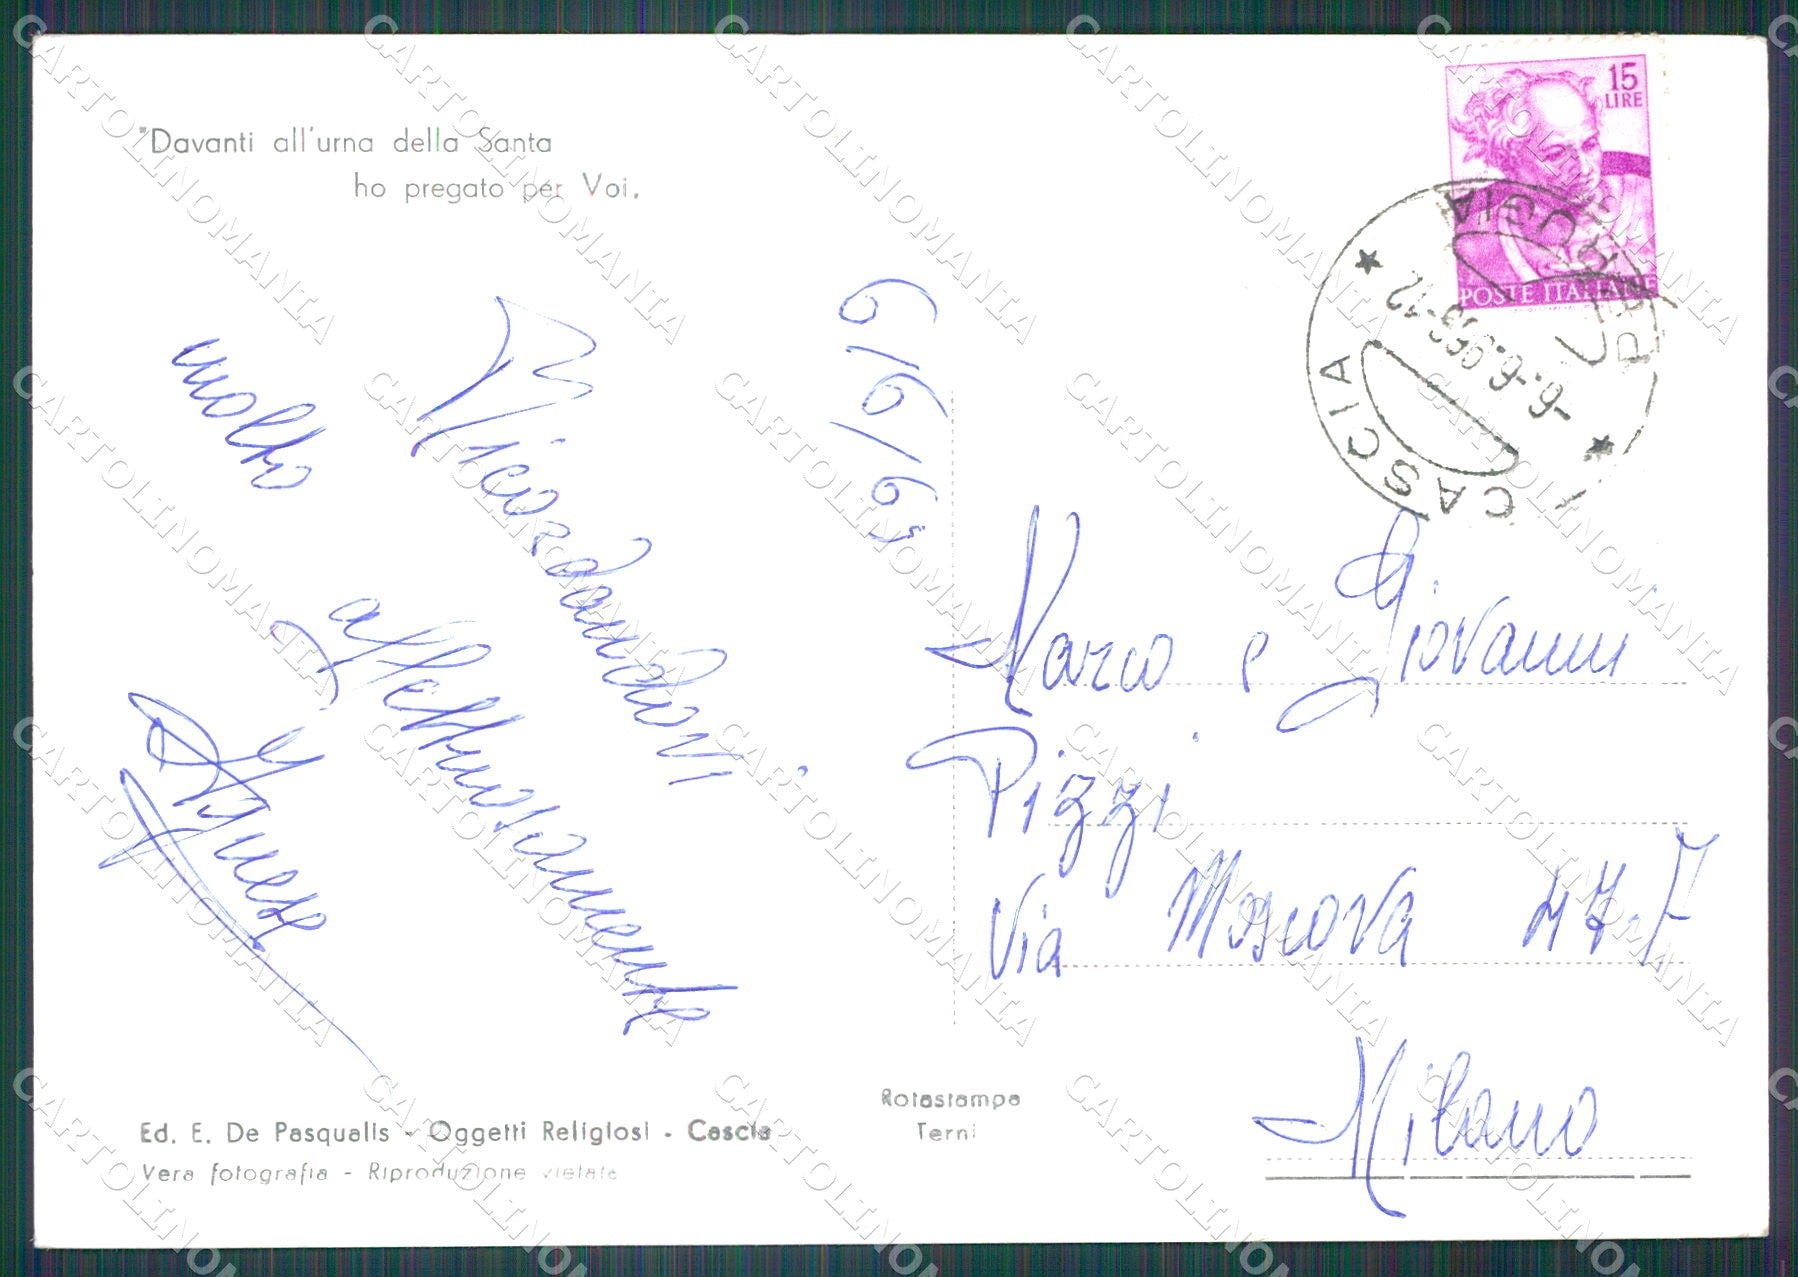 "Davanti all'urna della Santa
ho pregato per Voi.
15
LIRE
POSTE ITALIANE
CASCIA
PERUGIA
-6.-6.965-12
6/6/65
Ricordandovi
molto
affettuosamente
Agnese
Marco e Giovanni
Pizzi
Via Moscova 47.7
Milano
Ed. E. De Pasqualis - Oggetti Religiosi - Cascia
Vera fotografia - Riproduzione vietata
Rotastampa
Terni
CARTOLINOMANIA